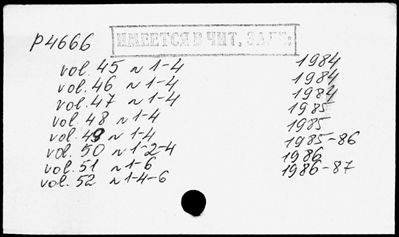 P4666 ИМЕЕТСЯ В ЧИТ. ЗАЛЕ:
vol. 45 N 1-4 1984
vol. 46 N 1-4 1984
vol. 47 N 1-4 1984
vol 48 N 1-4 1985
vol. 49 N 1-4 1985
vol. 50 N 1-2-4 1985-86
vol. 51 N 1-6 1986
vol. 52 N 1-4-6 1986-87